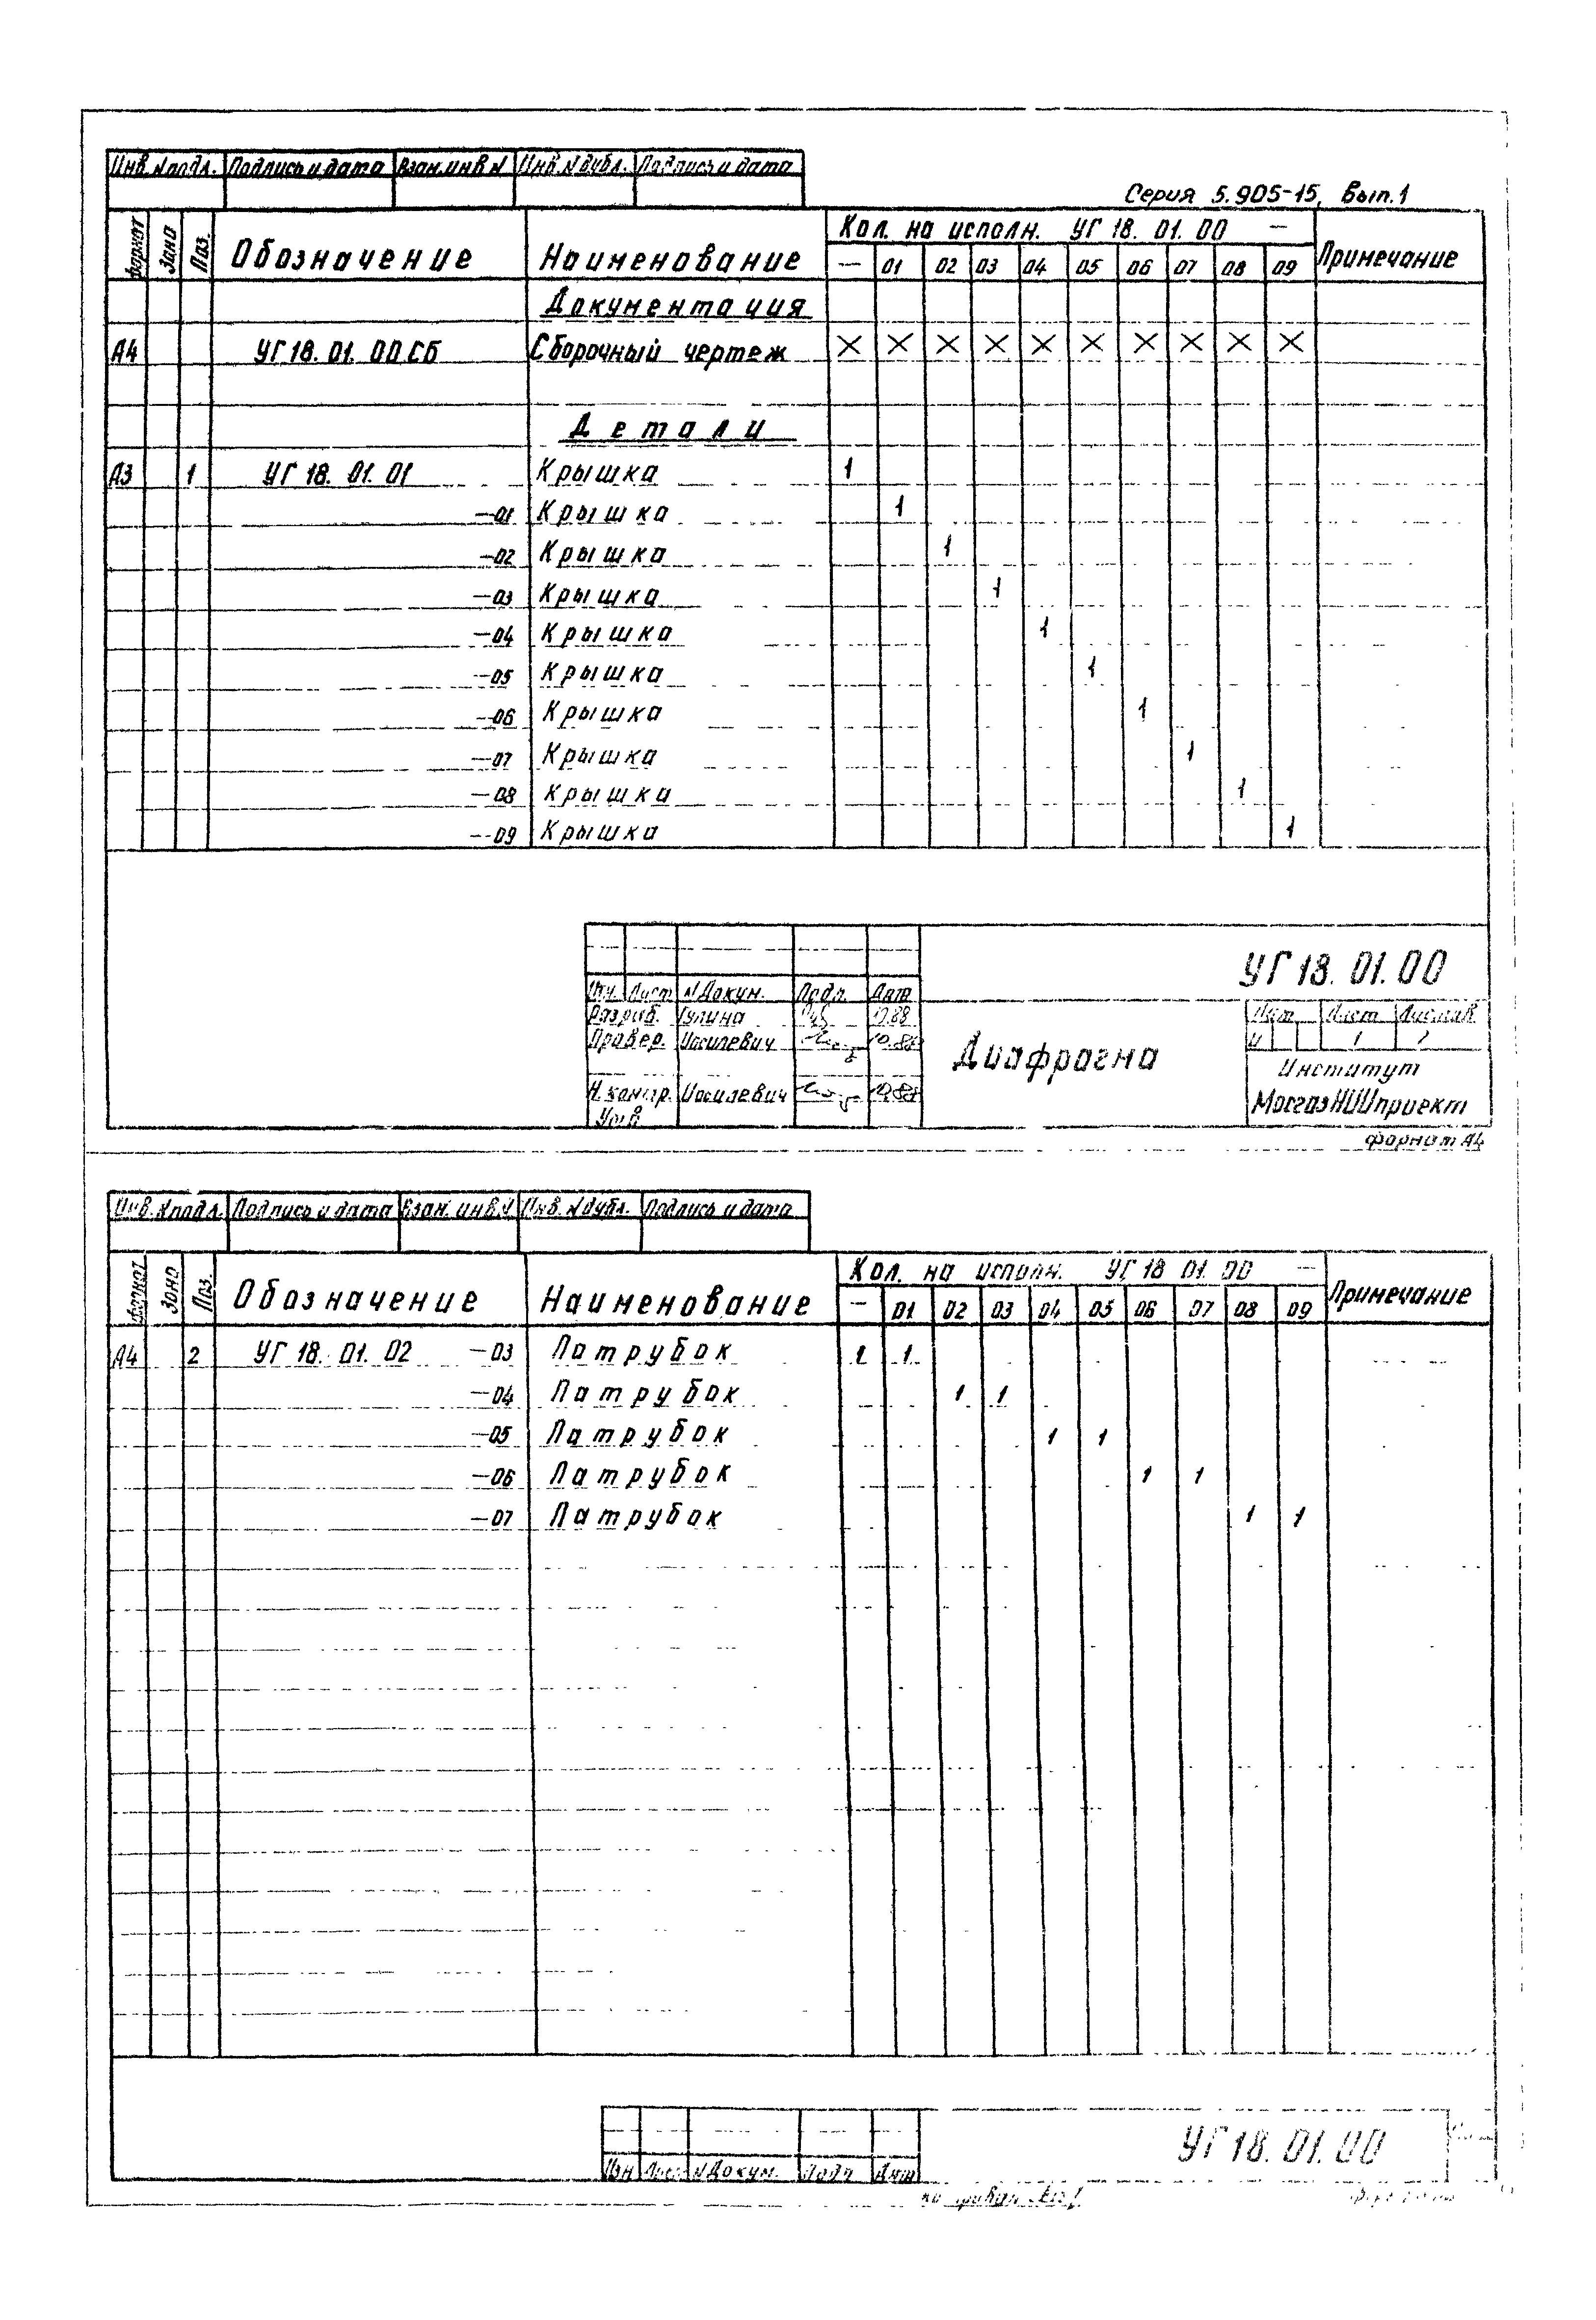 Инв. N подл. Подпись и дата Взам. инв N Инв. N дубл. Подпись и дата
Серия 5.905-15, Вып.1
формат Зона Поз. Обозначение Наименование Кол. на исполн. УГ 18. 01. 00 — Примечание
— 01 02 03 04 05 06 07 08 09
Документация
А4 УГ 18. 01. 00 СБ Сборочный чертеж X X X X X X X X X X
Детали
А3 1 УГ 18. 01. 01 Крышка 1
—01 Крышка 1
—02 Крышка 1
—03 Крышка 1
—04 Крышка 1
—05 Крышка 1
—06 Крышка 1
—07 Крышка 1
—08 Крышка 1
—09 Крышка 1
УГ 18. 01. 00
Изм. Лист N Докум. Подп. Дата
Разраб. Гулина
Провер. Иосилевич 10.88
Н. контр. Иосилевич 10.88
Утв.
Диафрагма
Лит. Лист Листов
И 1 2
Институт
МосгазНИИпроект
формат А4
Инв. N подл. Подпись и дата Взам. инв. N Инв. N дубл. Подпись и дата
формат Зона Поз. Обозначение Наименование Кол. на исполн. УГ 18 01. 00 — Примечание
— 01 02 03 04 05 06 07 08 09
А4 2 УГ 18. 01. 02 —03 Патрубок 1 1
—04 Патрубок 1 1
—05 Патрубок 1 1
—06 Патрубок 1 1
—07 Патрубок 1 1
УГ 18. 01. 00
Изм Лист N Докум. Подп Дат